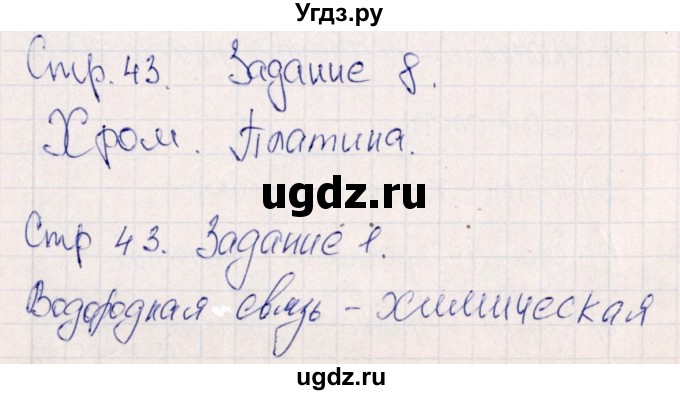 Угдз.ру
Стр. 43. Задание 8.
Хром. Платина.
ugdz.ru
Стр 43. Задание 1.
Водородная связь - химическая
ugdz.ru